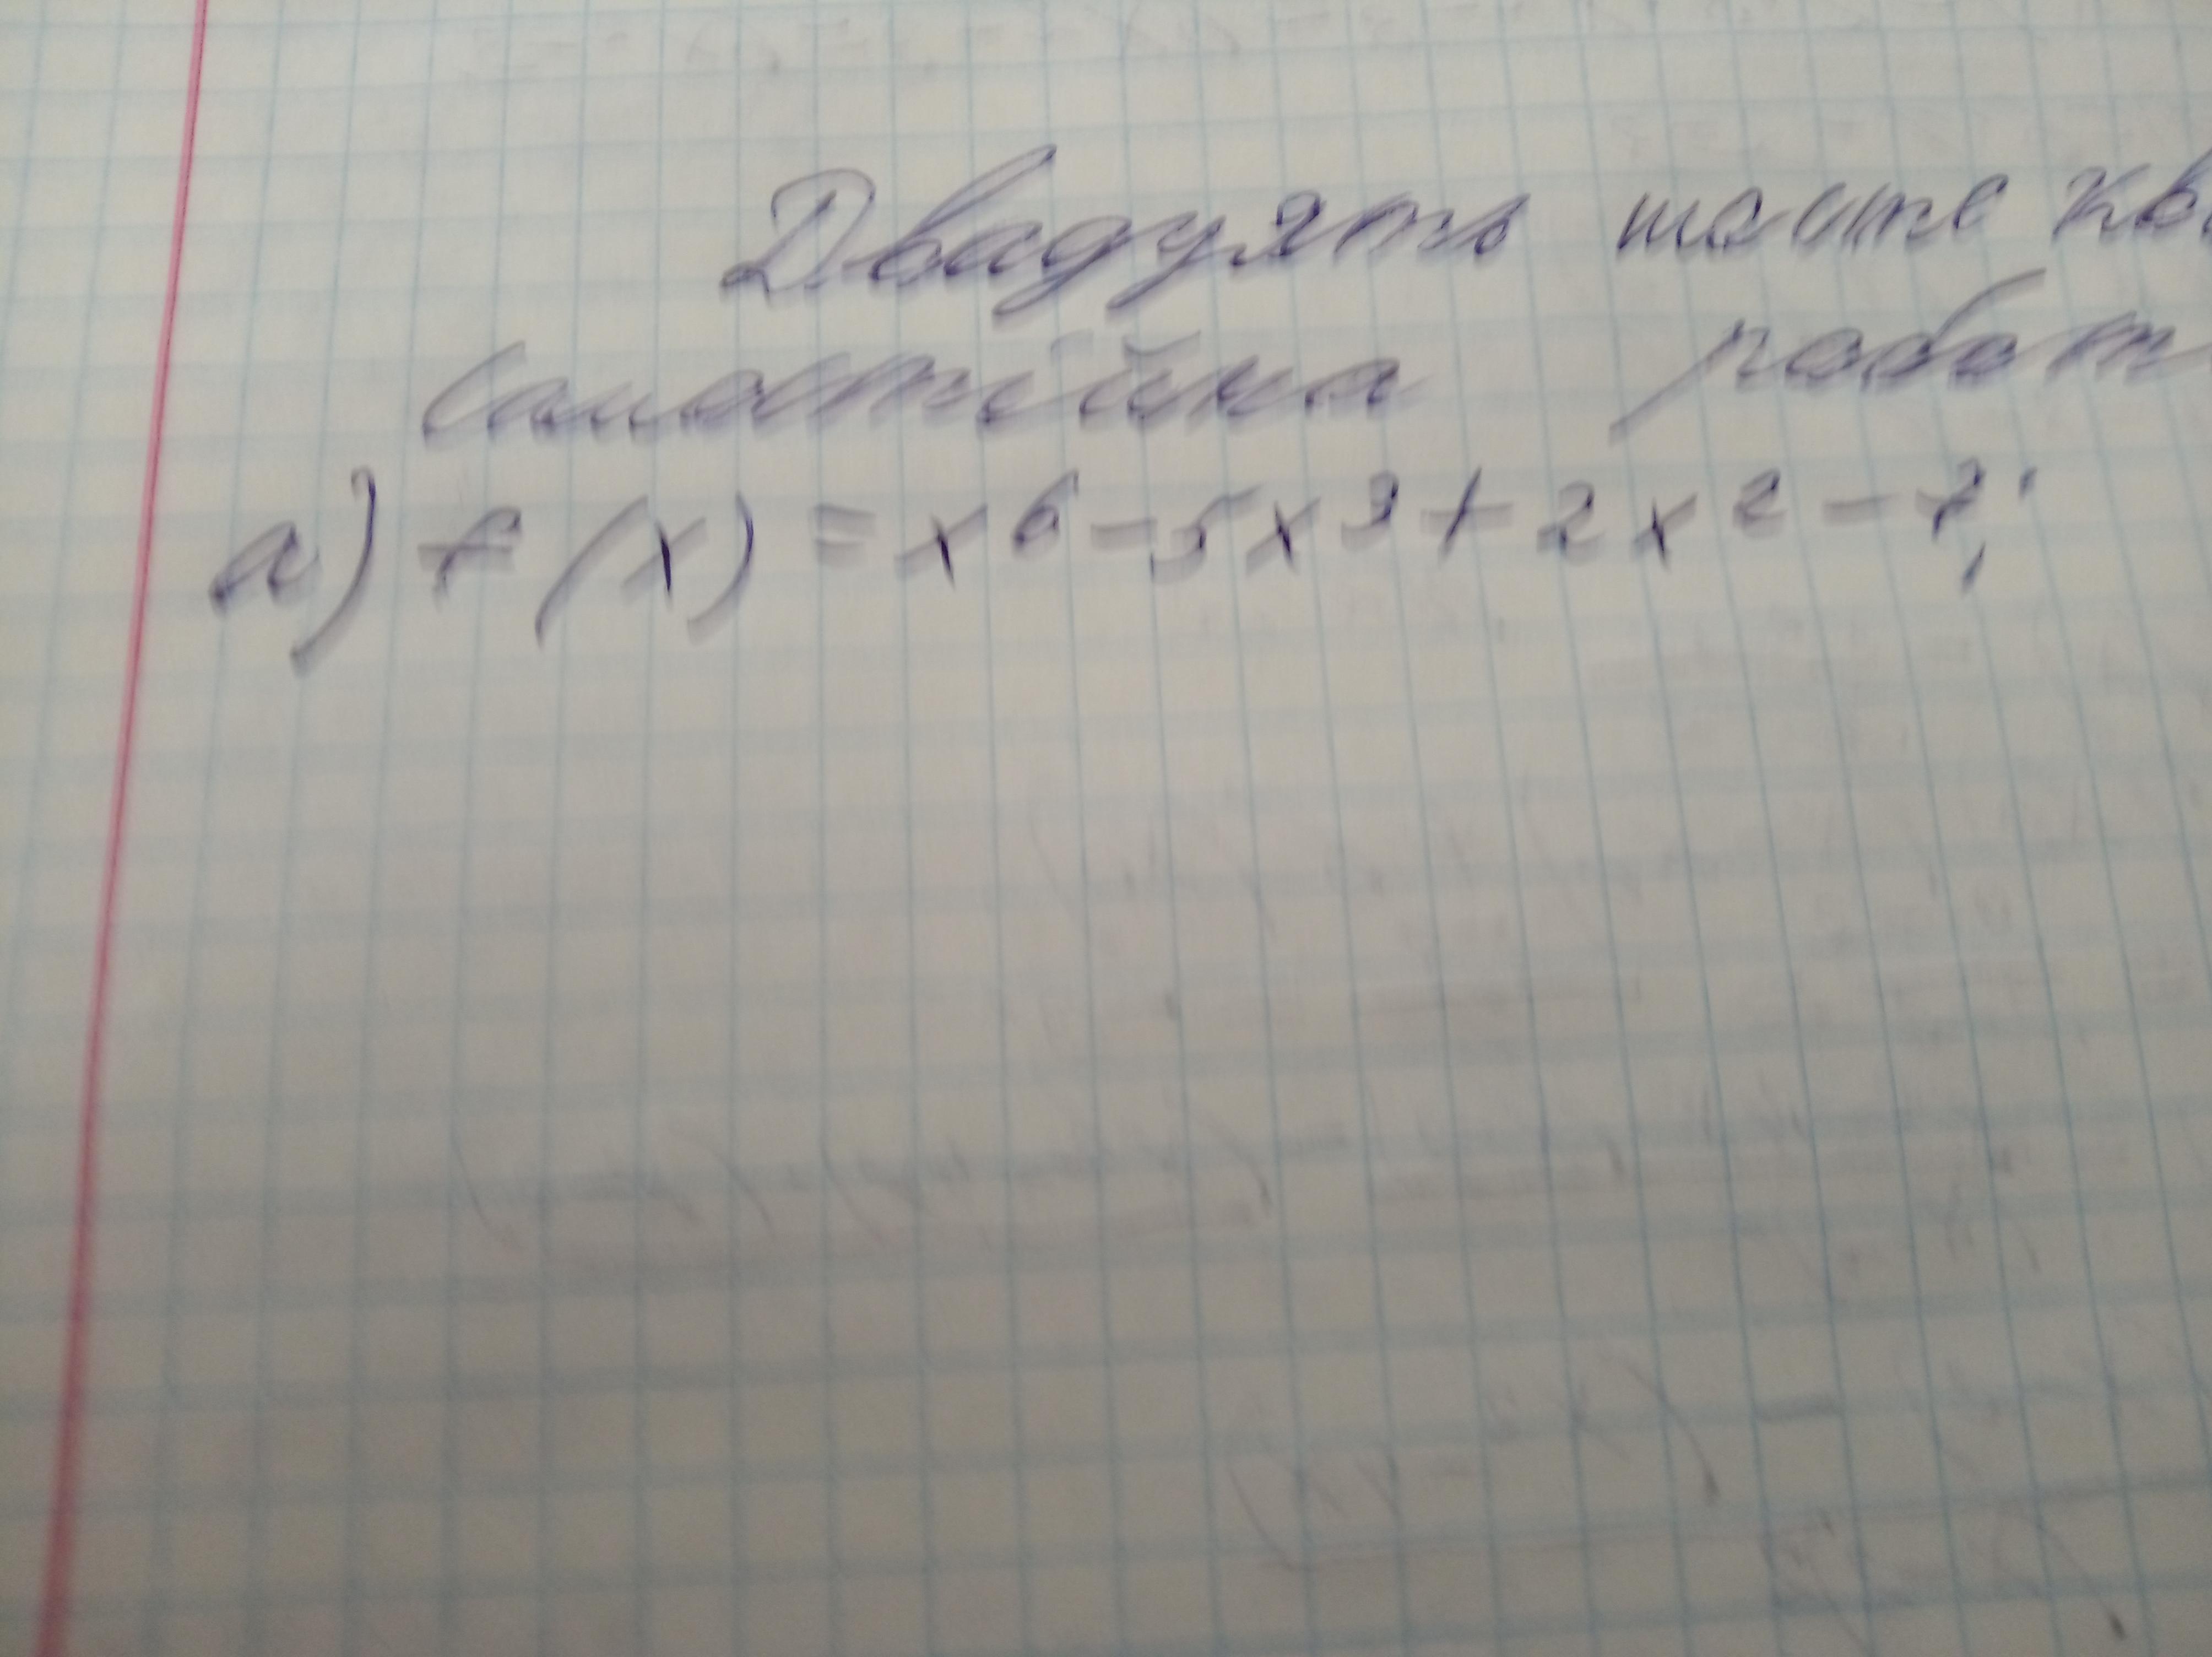 Двадцять шосте кв
Самостійна робот
а) f(x) = x⁶ - 5x³ + 2x² - 7;